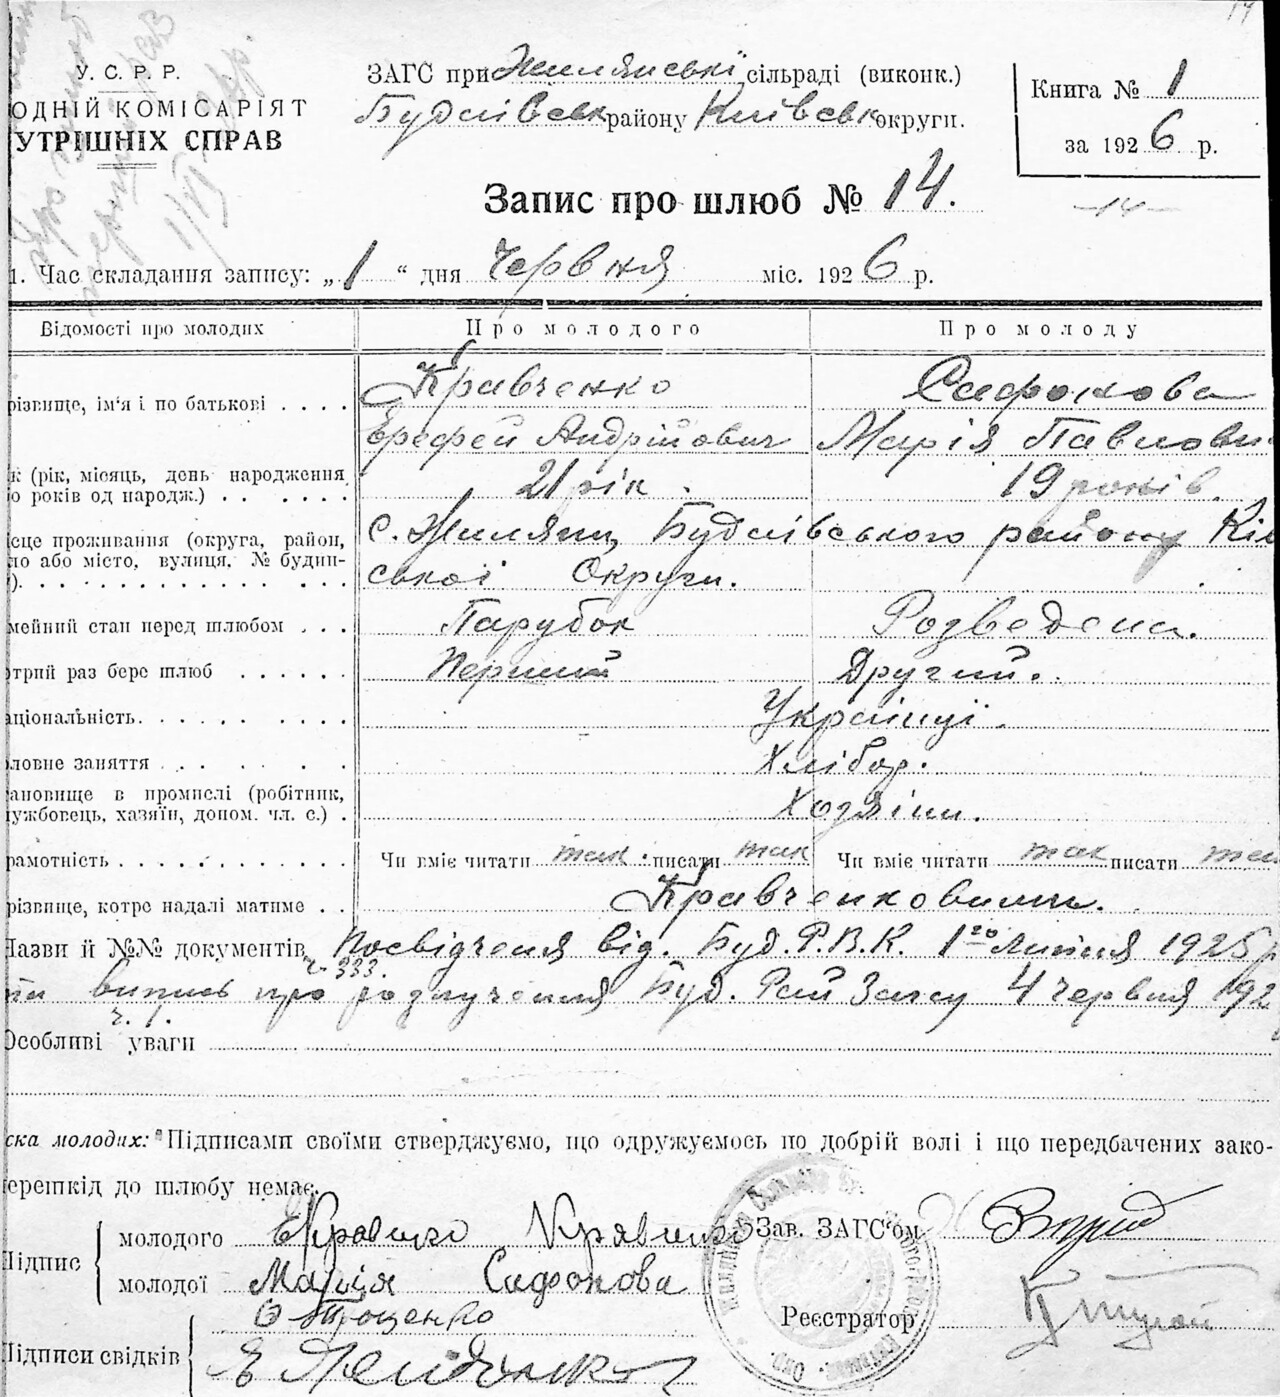 У. С. Р. Р.
ОДНІЙ КОМІСАРІЯТ
УТРІШНІХ СПРАВ
ЗАГС при Жилянські сільраді (виконк.)
Будаївськ району Київськ округи.
Книга № 1
за 1926 р.
Запис про шлюб № 14.
-14-
1. Час складання запису: „1“ дня Червня міс. 1926 р.
Відомості про молодих Про молодого Про молоду
різвище, ім'я і по батькові . . . . Кравченко Сафонова
Ерофей Андрійович Марія Павлови
к (рік, місяць, день народження
о років од народж.) . . . . . . . 21 рік. 19 років.
сце проживання (округа, район, с. Жиляни, Будаївського району Кив
ло або місто, вулиця. № будин- ської Округи.
). . . . . . . . . . . . . . . .
мейний стан перед шлюбом . . . Парубок Розведена.
отрий раз бере шлюб . . . . . . Перший Другий.
аціональність. . . . . . . . . . Українці.
ловне заняття . . . . . . . Хлібор.
ановище в промислі (робітник,
ужбовець, хазяїн, допом. чл. с.) . Хозяїни.
рамотність . . . . . . . . . . . Чи вміє читати так. писати так Чи вміє читати так писати так
різвище, котре надалі матиме . . Кравченковими.
Назви й №№ документів Посвідчення від. Буд. Р.В.К. 1го Липня 1925 р
ч 333.
випись про розлучення Буд. Рай Загсу 4 червня 192
ч. 1.
Особливі уваги
ска молодих: "Підписами своїми стверджуємо, що одружуємось по добрій волі і що передбачених зако-
ерешкід до шлюбу немає.
Підпис молодого Е Кравченко
Зав. ЗАГС'ом
молодої Марія Сафонова
Реєстратор
Підписи свідків О Троценко